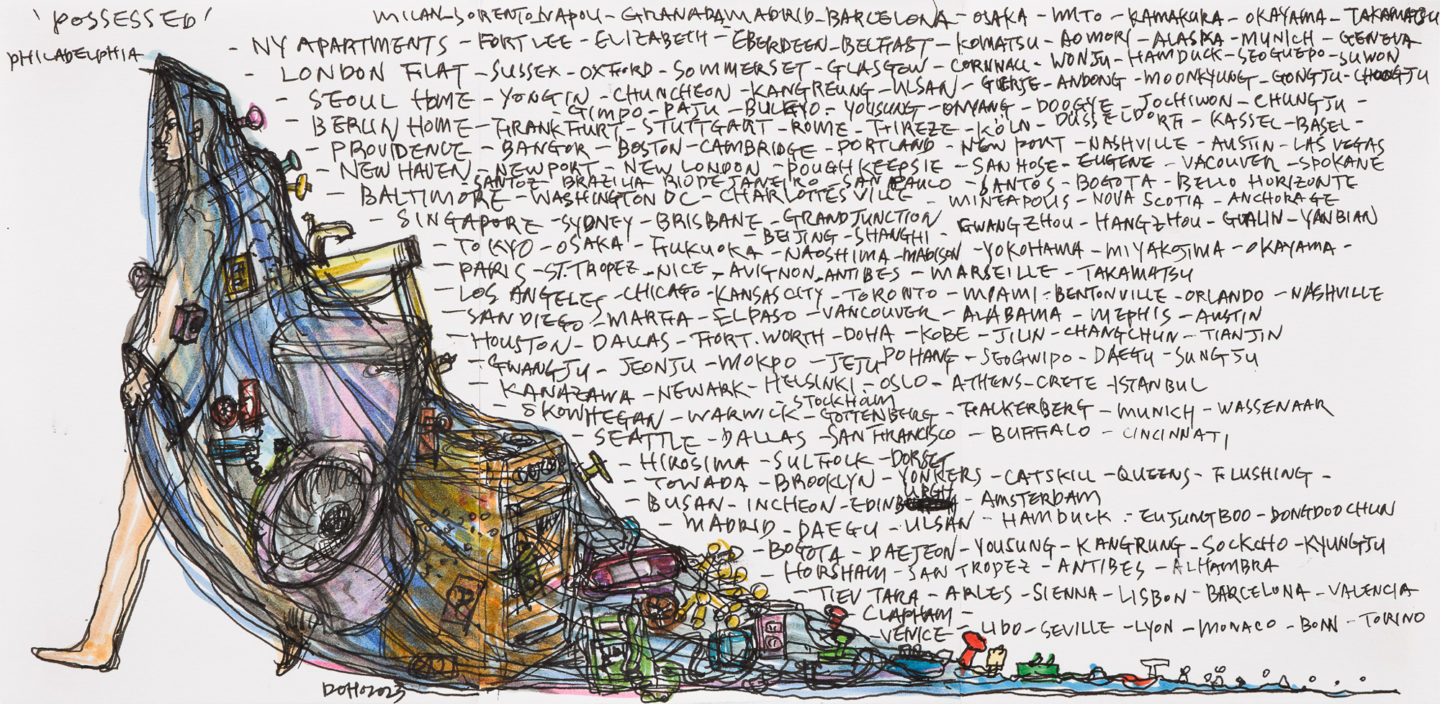 'POSSESSED'
MILAN - SORENTO - NAPOLI - GRANADA MADRID - BARCELONA - OSAKA - MITO - KAMAKURA - OKAYAMA - TAKAMATSU
PHILADELPHIA
- NY APARTMENTS - FORT LEE - ELIZABETH - EBERDEEN - BELFAST - KOMATSU - AOMORI - ALASKA - MUNICH - GENEVA
- LONDON FLAT - SUSSEX - OXFORD - SOMMERSET - GLASGOW - CORNWALL - WONJU - HAMDUCK - SEOGUEPO - SUWON
- SEOUL HOME - YONGIN - CHUNCHEON - KANGREUNG - ULSAN - GURYE - ANDONG - MOONKYUNG - GONGJU - CHOONGJU
- GIMPO - PAJU - BUKEYO - YOUSUNG - ONYANG - DOOGYE - JOCHIWON - CHUNGJU -
- BERLIN HOME - FRANKFURT - STUTTGART - ROME - FIREZE - KÖLN - DÜSSELDORF - KASSEL - BASEL -
- PROVIDENCE - BANGOR - BOSTON - CAMBRIDGE - PORTLAND - NEW PORT - NASHVILLE - AUSTIN - LAS VEGAS
- NEW HAVEN - NEWPORT - NEW LONDON - POUGHKEEPSIE - SAN HOSE - EUGENE - VACOUVER - SPOKANE
SANTOZ BRAZILIA RIO DE JANEIRO - SAN PAULO - SANTOS - BOGOTA - BELLO HORIZONTE
- BALTIMORE - WASHINGTON DC - CHARLOTTESVILLE - MINEAPOLIS - NOVA SCOTIA - ANCHORAGE
- SINGAPORE - SYDNEY - BRISBANE - GRAND JUNCTION GWANGZHOU - HANGZHOU - GUALIN - YANBIAN
- BEIJING - SHANGHI -
- TOKYO - OSAKA - FUKUOKA - NAOSHIMA - MADISON - YOKOHAMA - MIYAKOJIMA - OKAYAMA -
- PARIS - ST. TROPEZ - NICE - AVIGNON - ANTIBES - MARSEILLE - TAKAMATSU
- LOS ANGELES - CHICAGO - KANSAS CITY - TORONTO - MIAMI - BENTONVILLE - ORLANDO - NASHVILLE
- SAN DIEGO - MARFA - EL PASO - VANCOUVER - ALABAMA - MEPHIS - AUSTIN
- HOUSTON - DALLAS - FORT. WORTH - DOHA - KOBE - JILIN - CHANGCHUN - TIANJIN
- GWANGJU - JEONJU - MOKPO - JEJU POHANG - SEOGWIPO - DAEGU - SUNGJU
- KANAZAWA - NEWARK - HELSINKI - OSLO - ATHENS - CRETE - ISTANBUL
- STOCKHOLM
- SKOWHEGAN - WARWICK - GOTTENBERG - FALKERBERG - MUNICH - WASSENAAR
- SEATTLE - DALLAS - SAN FRANCISCO - BUFFALO - CINCINNATI
- HIROSIMA - SULFOLK - DORSET
- TOWADA - BROOKLYN - YONKERS - CATSKILL - QUEENS - FLUSHING -
- BUSAN - INCHEON - EDINBURGH - AMSTERDAM
- MADRID - DAEGU - ULSAN - HAMDUCK - EUJUNGBOO - DONGDOOCHUN
- BOGOTA - DAEJEON - YOUSUNG - KANGRUNG - SOCKCHO - KYUNGJU
- HORSHAM - SAN TROPEZ - ANTIBES - ALHAMBRA
- TIEV TARA - ARLES - SIENNA - LISBON - BARCELONA - VALENCIA
- CLAPHAM -
- VENICE - LIDO - SEVILLE - LYON - MONACO - BONN - TORINO
DOHO2023